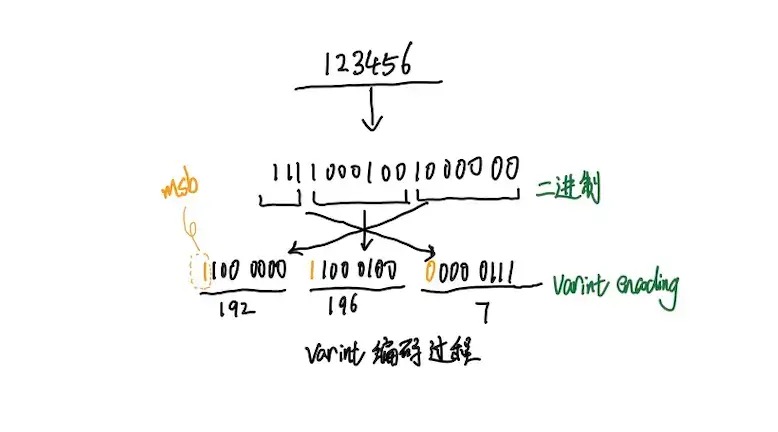 123456
111 1000100 1000000
二进制
msb
1100 0000 1100 0100 0000 0111
varint encoding
192 196 7
varint 编码过程